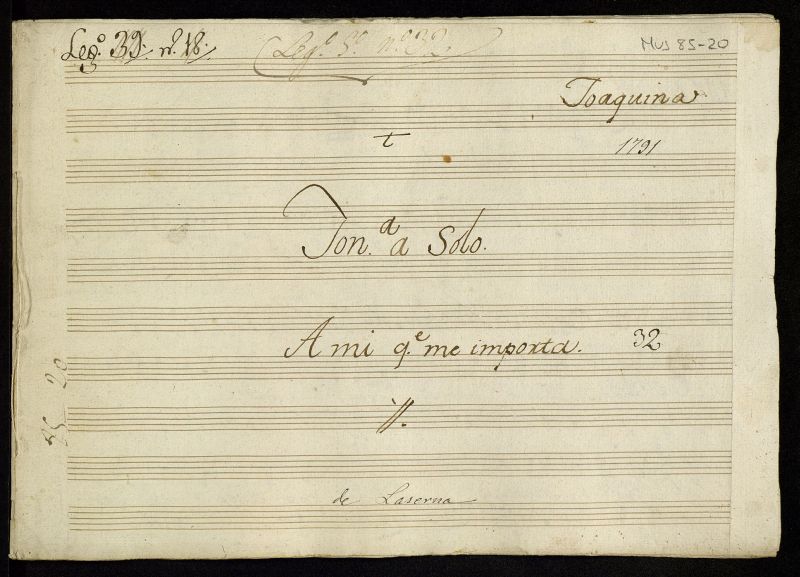 Leg.º 39. nº 18.
(Leg.º 5.º nº 32
Mus 85-20
Joaquina
t
1791
Ton.ª a Solo.
A mi q.e me importa. 32
//.
de Laserna
85 20